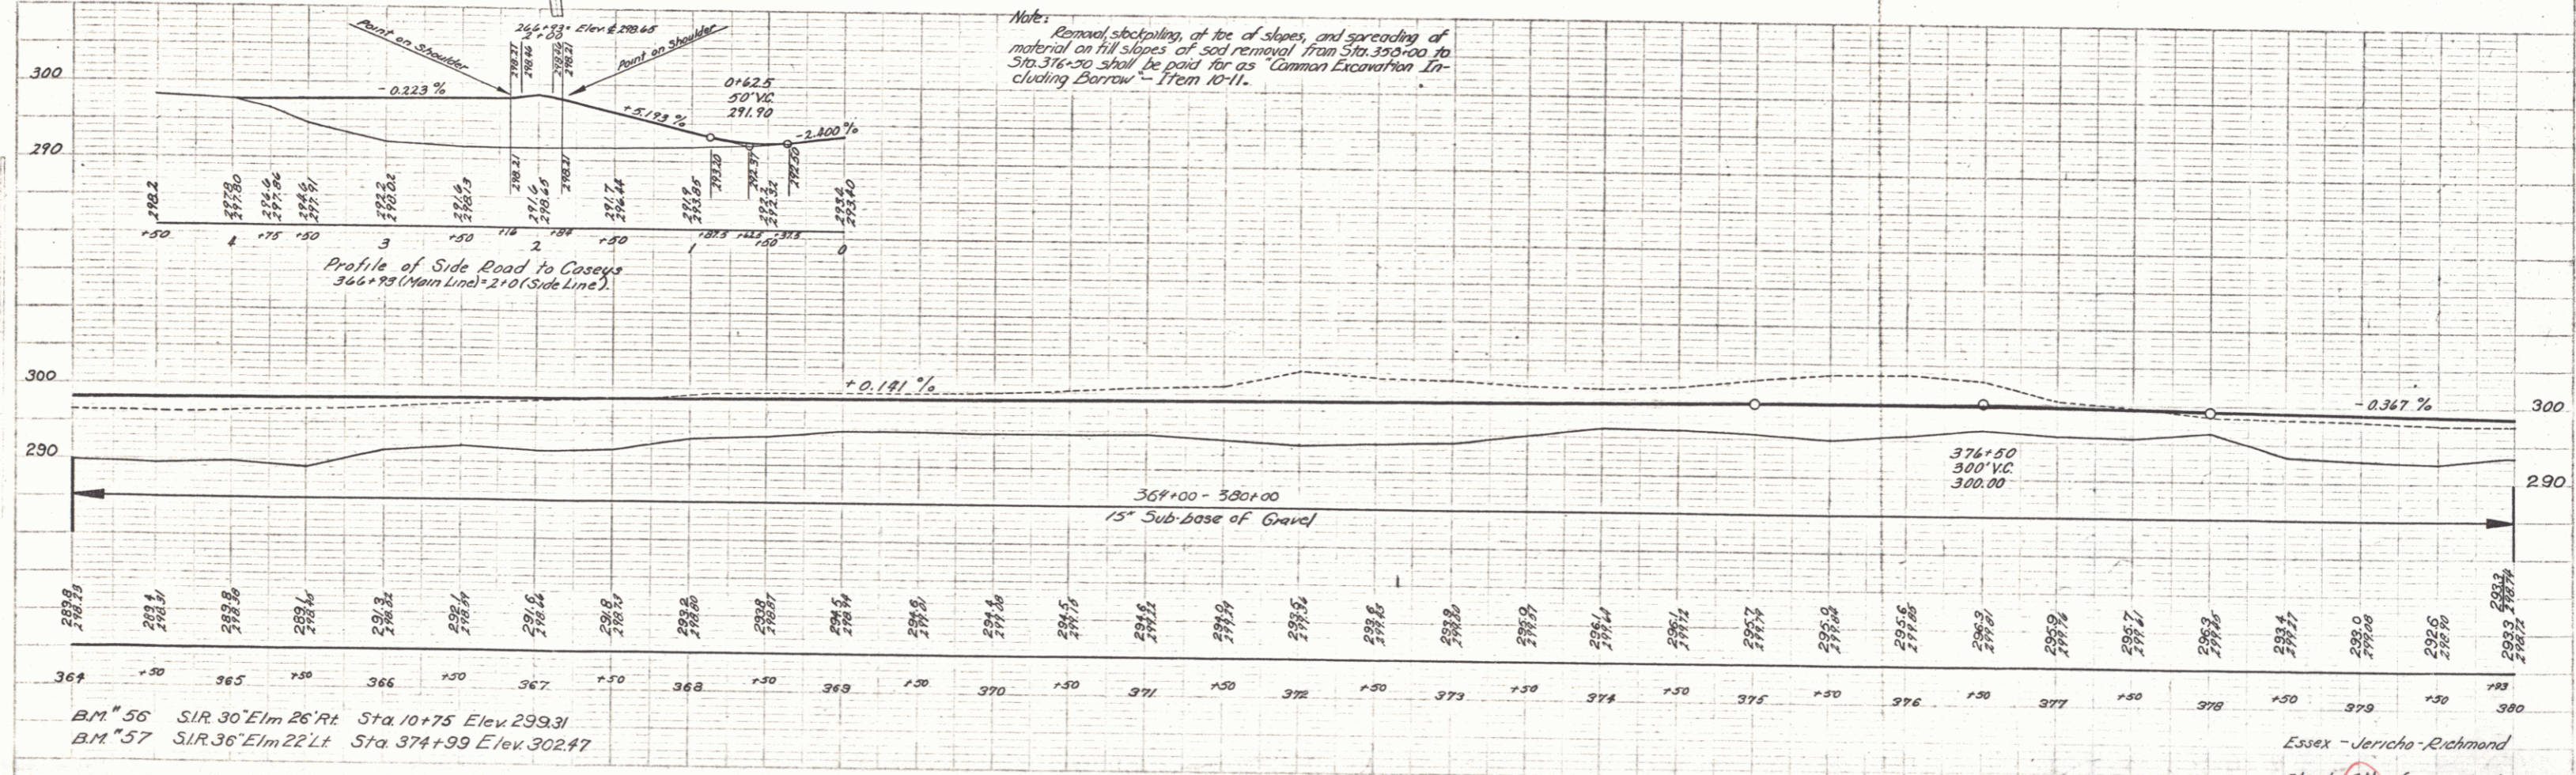 Note:
Removal, stockpiling, at toe of slopes, and spreading of
material on fill slopes of sod removal from Sta. 358+00 to
Sta. 376+50 shall be paid for as "Common Excavation In-
cluding Borrow" - Item 10-11.
266+93 = Elev. 298.65
2+00
Point on Shoulder
298.21
298.46
298.46
298.21
Point on Shoulder
300
- 0.223 %
+5.193 %
0+62.5
50' V.C.
291.90
-2.400 %
290
298.2
297.8 297.80
296.6 297.86
294.6 297.91
292.2 298.02
291.6 298.13
298.21
291.6 298.65
298.21
291.7 296.44
291.9 293.85
293.20
292.37
292.2 292.32
292.50
293.6 293.40
+50 4 +75 +50 3 +50 +16 2 +84 +50 1 +87.5 +62.5 +50 +37.5 0
Profile of Side Road to Caseys
366+93 (Main Line) = 2+0 (Side Line).
300
+0.141 %
- 0.367 %
300
290
376+50
300' V.C.
300.00
290
364+00 - 380+00
15" Sub-base of Gravel
289.8 298.23
289.4 298.31
289.8 298.38
289.1 298.45
291.3 298.52
292.1 298.59
291.6 298.66
291.8 298.73
293.2 298.80
293.8 298.87
294.5 298.94
294.6 299.01
294.4 299.08
294.5 299.15
294.6 299.22
294.0 299.29
293.5 299.36
293.6 299.43
293.9 299.50
295.0 299.57
296.1 299.64
296.1 299.72
295.7 299.79
295.0 299.84
295.6 299.85
296.3 299.81
295.9 299.76
295.7 299.61
296.3 299.45
293.4 299.27
293.0 299.08
292.6 298.90
293.3 298.74
293.3 298.72
364 +50 365 +50 366 +50 367 +50 368 +50 369 +50 370 +50 371 +50 372 +50 373 +50 374 +50 375 +50 376 +50 377 +50 378 +50 379 +50 +93 380
B.M. #56 S.I.R. 30" Elm 26' Rt. Sta. 10+75 Elev. 299.31
B.M. #57 S.I.R. 36" Elm 22' Lt. Sta. 374+99 Elev. 302.47
Essex - Jericho - Richmond